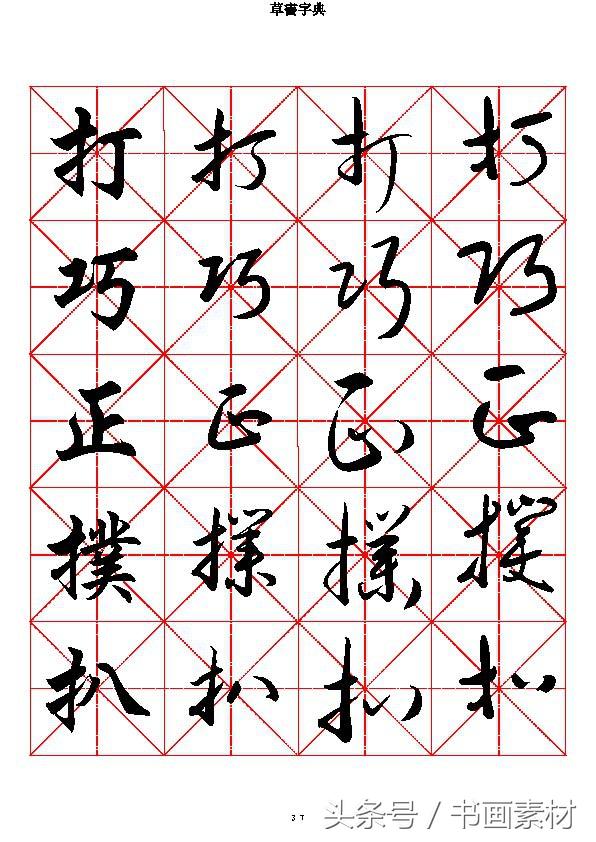 草書字典
打 打 打 打
巧 巧 巧 巧
正 正 正 正
撲 撲 撲 撲
扒 扒 扒 扒
37
头条号 / 书画素材